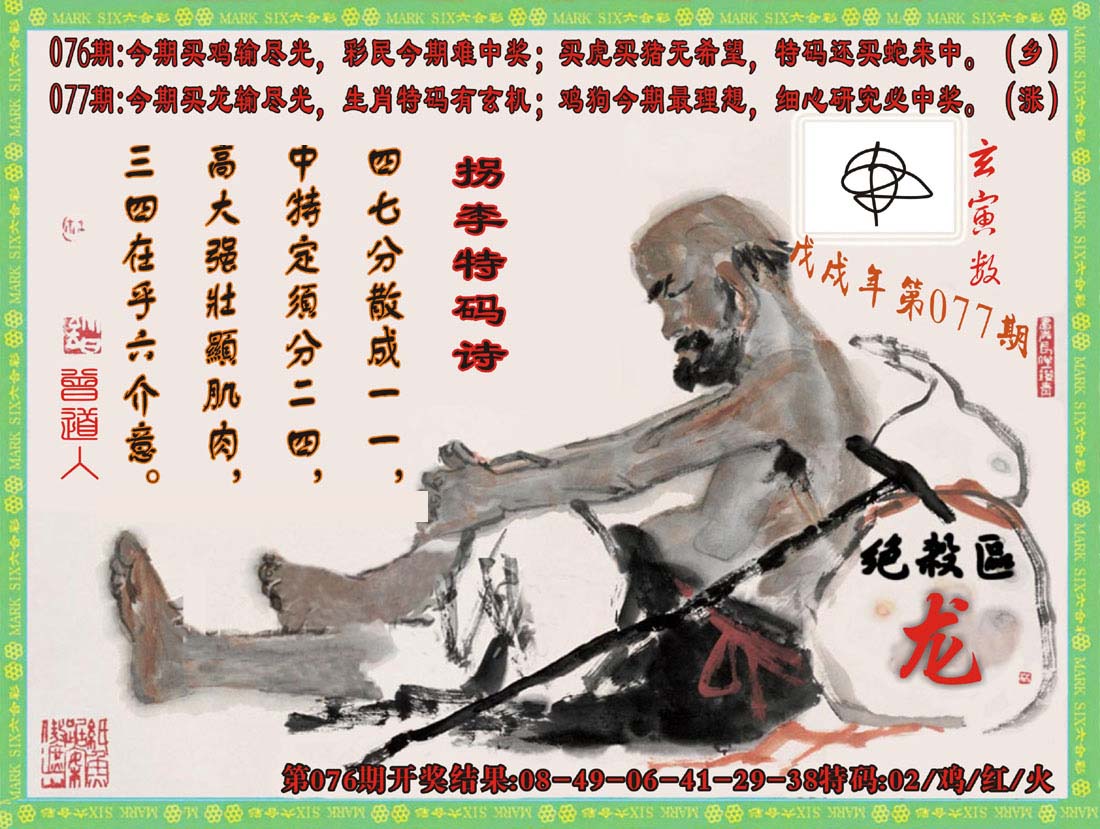 MARK SIX六合彩
076期:今期买鸡输尽光，彩民今期难中奖；买虎买猪无希望，特码还买蛇来中。（乡）
077期:今期买龙输尽光，生肖特码有玄机；鸡狗今期最理想，细心研究必中奖。（涨）
玄寅数
戊戌年第077期
拐李特码诗
四七分散成一一，
中特定須分二四，
高大强壯顯肌肉，
三四在乎六介意。
曾道人
绝殺區
龙
第076期开奖结果:08-49-06-41-29-38特码:02/鸡/红/火